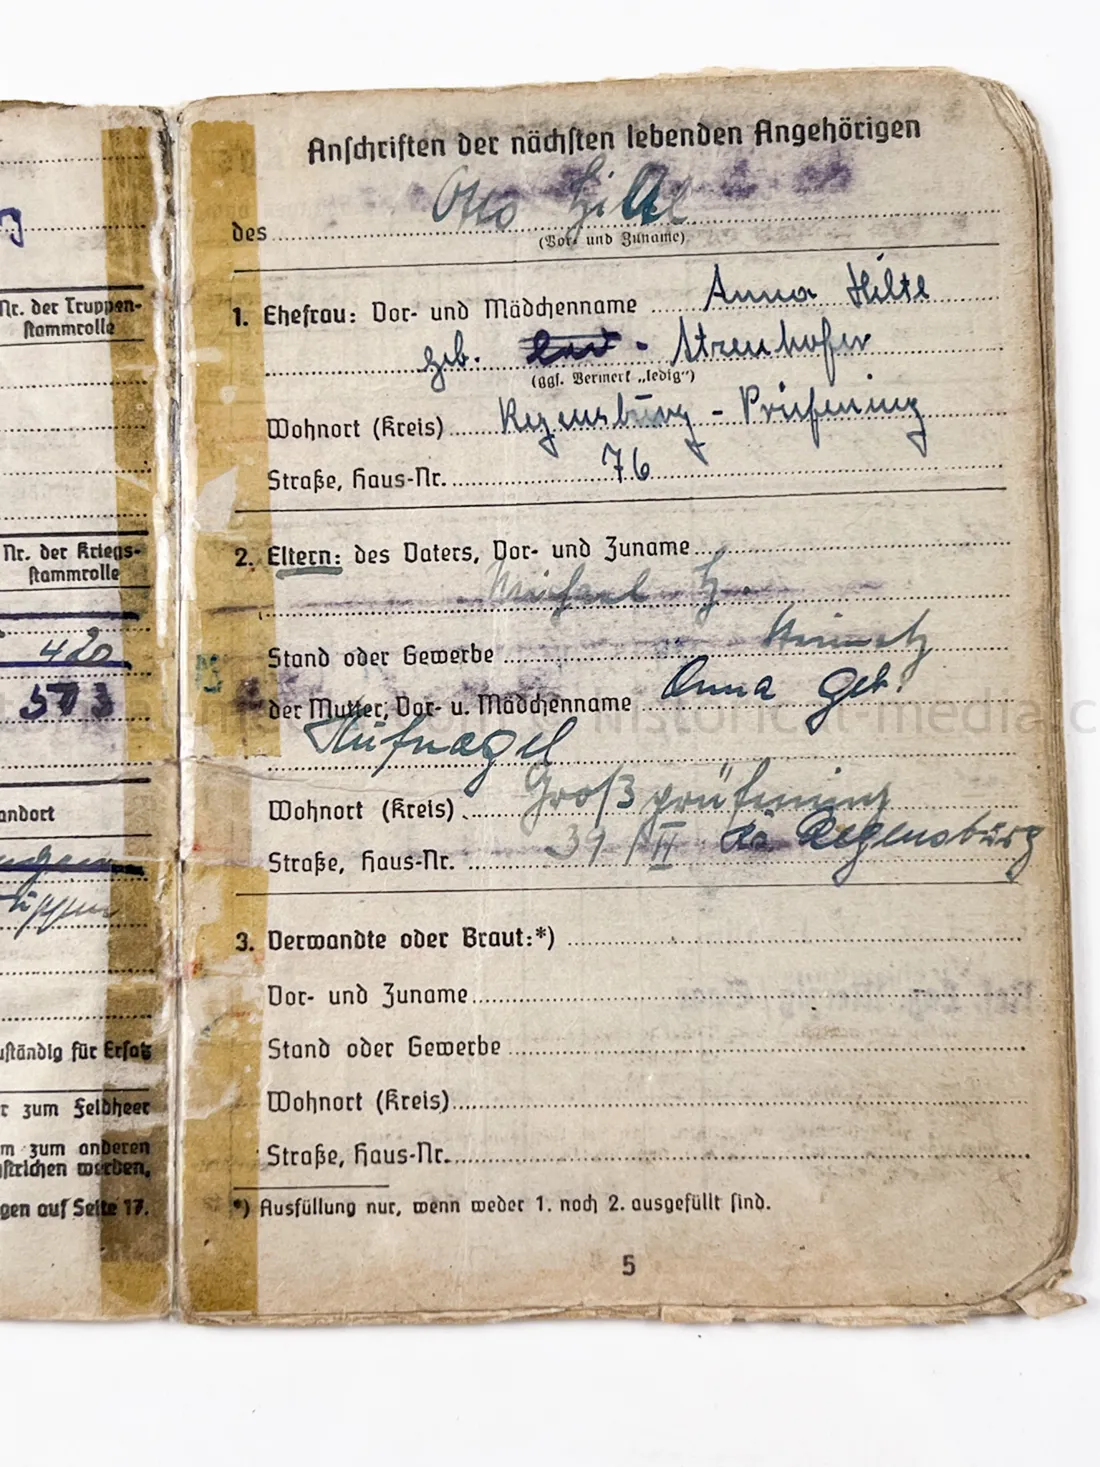 Nr. der Truppen-
stammrolle
Nr. der Kriegs-
stammrolle
420
573
andort
uständig für Ersatz
r zum Feldheer
m zum anderen
streichen werden,
gen auf Seite 17.
Anschriften der nächsten lebenden Angehörigen
des Otto
(Vor- und Zuname)
1. Ehefrau: Vor- und Mädchenname Anna Hiltl
geb. led - Strenhofer
(ggf. Vermerk „ledig")
Wohnort (Kreis) Regensburg - Prüfening
Straße, Haus-Nr. 76
2. Eltern: des Vaters, Vor- und Zuname
Michael H.
Stand oder Gewerbe
der Mutter, Vor- u. Mädchenname Anna geb.
Hüfnagel
Wohnort (Kreis) Großprüfening
Straße, Haus-Nr. 31/II Regensburg
3. Verwandte oder Braut:*)
Vor- und Zuname
Stand oder Gewerbe
Wohnort (Kreis)
Straße, Haus-Nr.
*) Ausfüllung nur, wenn weder 1. noch 2. ausgefüllt sind.
5
historical-media.c